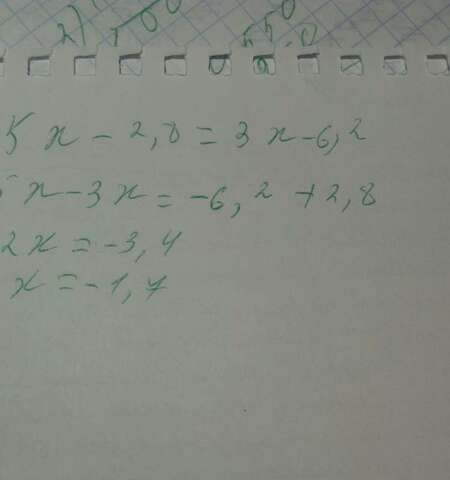 2)
5x - 2,8 = 3x - 6,2
5x - 3x = -6,2 + 2,8
2x = -3,4
x = -1,7